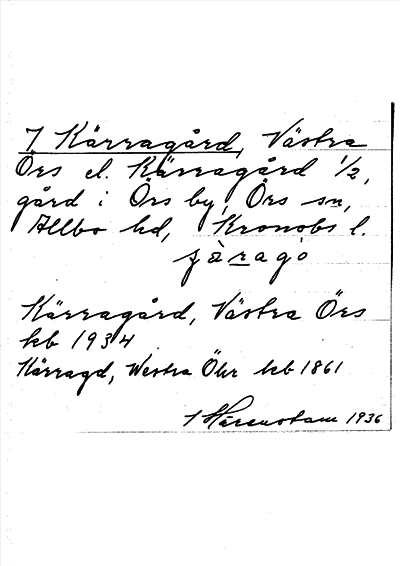 7 Kärragård, Västra
Örs el. Kärragård 1/2,
gård i Örs by, Örs sn,
Allbo hd, Kronobs l.
jàragò
Kärragård, Västra Örs
kb 1934
Kärragd, Westra Öhr kb 1861
1936